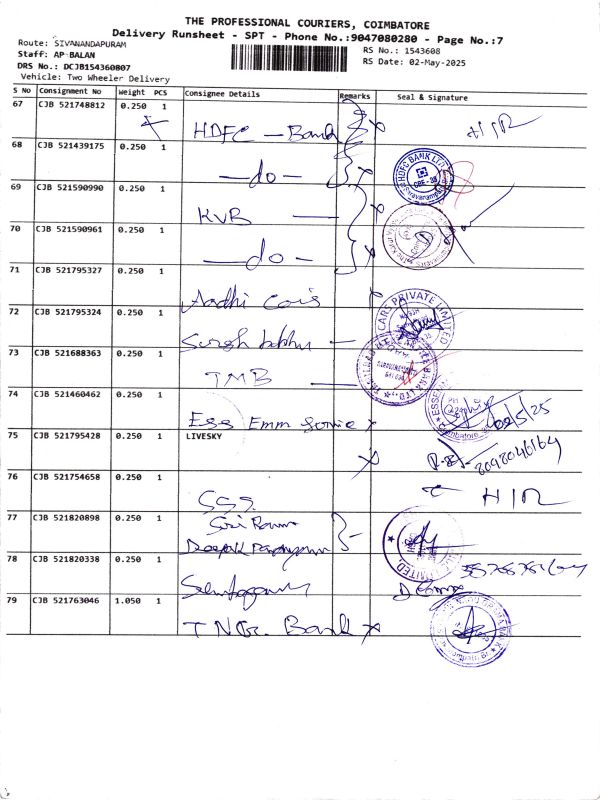 THE PROFESSIONAL COURIERS, COIMBATORE
Delivery Runsheet - SPT - Phone No.:9047080280 - Page No.:7
Route: SIVANANDAPURAM
Staff: AP-BALAN
RS No.: 1543608
DRS No.: DCJB154360807
RS Date: 02-May-2025
Vehicle: Two Wheeler Delivery
S No Consignment No Weight PCS Consignee Details Remarks Seal & Signature
67 CJB 521748812 0.250 1
HDFC - Bank
68 CJB 521439175 0.250 1
-do-
HDFC BANK LTD
69 CJB 521590990 0.250 1
KVB
70 CJB 521590961 0.250 1
-do-
71 CJB 521795327 0.250 1
Aadhi Cars
CARS PRIVATE LIMITED
72 CJB 521795324 0.250 1
73 CJB 521688363 0.250 1
TMB
74 CJB 521460462 0.250 1
Ess Emm
02/5/25
75 CJB 521795428 0.250 1 LIVESKY
76 CJB 521754658 0.250 1
SSS
77 CJB 521820898 0.250 1
Siri Rama
Deepak
78 CJB 521820338 0.250 1
79 CJB 521763046 1.050 1
TNGr. Bank